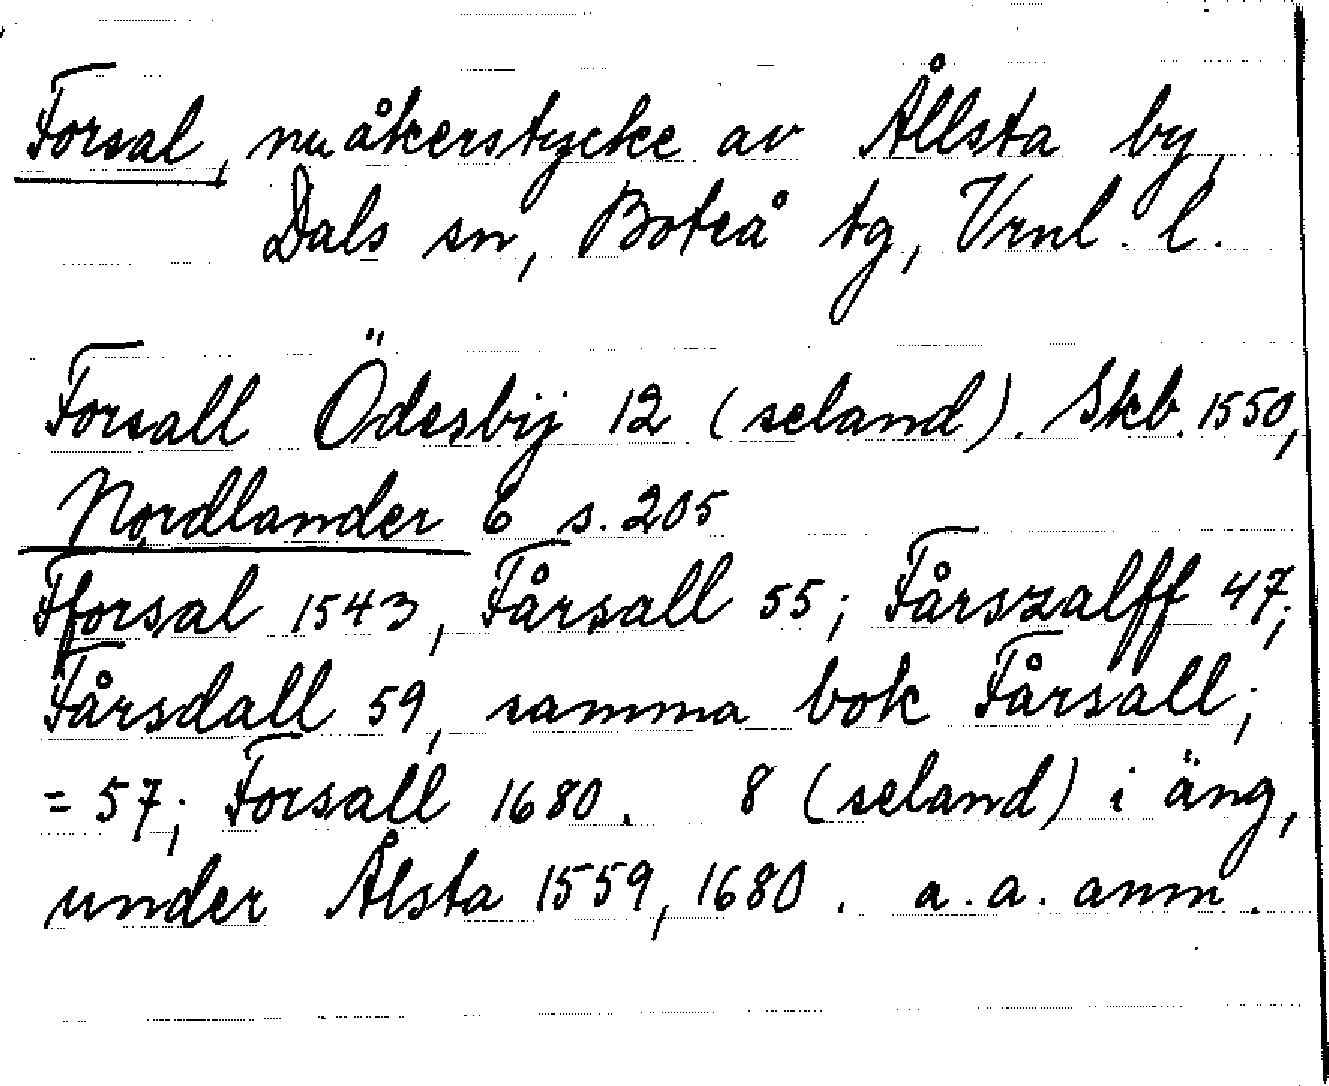 Forsal, nu åkerstycke av Ållsta by,
Dals sn, Boteå tg, Vrnl. l.
Forsall Ödesbij 12 (seland). Skb. 1550,
Nordlander 6 s. 205
Fforsal 1543, Fårsall 55; Fårszalff 47;
Fårsdall 59, samma bok Fårsall;
= 57; Forsall 1680. 8 (seland) i äng,
under Ålsta 1559, 1680. a. a. anm.